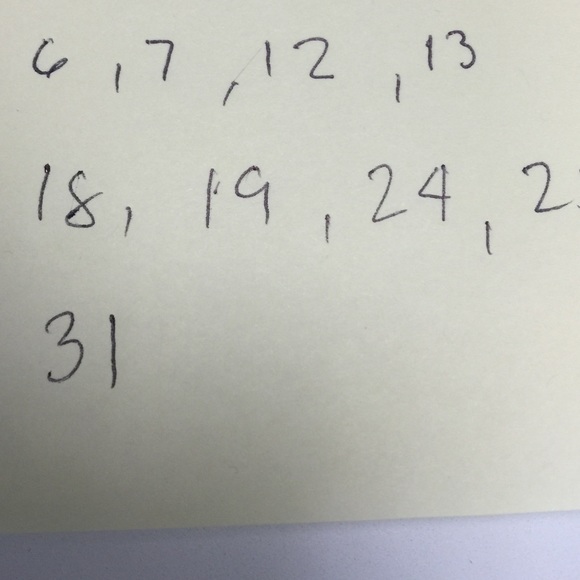 6, 7, 12, 13
18, 19, 24,
31